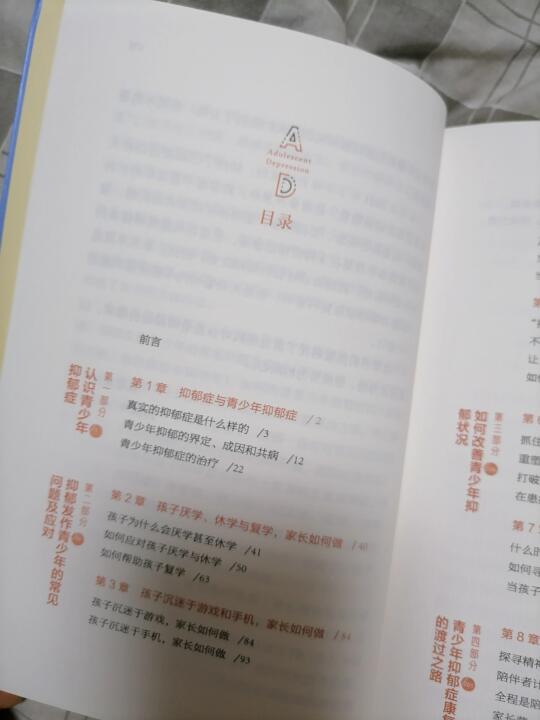 A
Adolescent
Depression
D
目录
前言
第一部分
认识青少年
抑郁症
第1章 抑郁症与青少年抑郁症 /2
真实的抑郁症是什么样的 /3
青少年抑郁的界定、成因和共病 /12
青少年抑郁症的治疗 /22
第二部分
抑郁发作青少年的常见
问题及应对
第2章 孩子厌学、休学与复学,家长如何做 /40
孩子为什么会厌学甚至休学 /41
如何应对孩子厌学与休学 /50
如何帮助孩子复学 /63
第3章 孩子沉迷于游戏和手机,家长如何做 /84
孩子沉迷于游戏,家长如何做 /84
孩子沉迷于手机,家长如何做 /93
不
让
如何
第三部分
如何改善青少年抑
郁状况
第6
抓住
重塑
打破
在患
第7章
什么时
如何寻
当孩子
第四部分
青少年抑郁症康复
的渡过之路
第8章
探寻精神
陪伴者计
全程是如何